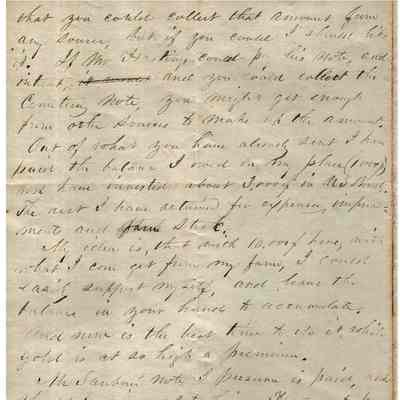 that you could collect that amount from
any source, but if you could I should like
it. If Mr. Hastings could pay his note, and
interest, and you could collect the
Cemetery Note, you might get enough
from other sources to make up the amount.
Out of what you have already sent I have
paid the balance I owed on my place (1000)
and have invested about 3,000 in U.S. Bonds.
The rest I have retained for expenses, improve-
ments and farm stock.
My idea is, that with 10,000 here, with
what I can get from my farm, I could
easily support myself, and leave the
balance in your hands to accumulate.
And now is the best time to do it while
gold is at so high a premium.
Mr note I presume is paid, and